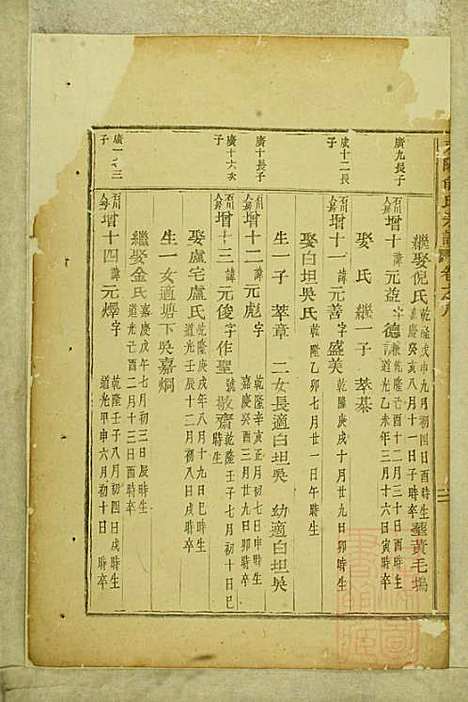 繼娶倪氏 乾隆戊申九月初四日酉時生 嘉慶癸亥八月十一日子時卒 葬黃毛塢
廣九長子
增十 諱元 字德 乾隆乙酉十二月三十日酉時生 道光乙未年三月十六日寅時卒
娶 氏 繼一子 萃棊
廣十二長子
增十一 諱元善 字盛美 乾隆庚戌十月廿九日卯時生
娶白坦吳氏 乾隆乙卯七月廿一日午時生
生一子 萃章 二女長適白坦吳 幼適白坦吳
廣十長子
增十二 諱元彪 字 乾隆辛亥正月初七日申時生 嘉慶癸酉三月廿九日卯時卒
廣十六次子
增十三 諱元俊 字作聖 號敬齋 乾隆壬子七月初十日巳
娶盧宅盧氏 乾隆庚戌年八月十九日巳時生 道光壬辰十二月初八日戌時卒
生一女適塘下吳嘉烱
繼娶金氏 嘉慶戊午七月初三日辰時生 道光己酉二月十三日辰時卒
子
增十四 諱元燡 字 乾隆壬子八月初四日戌時生 道光甲申六月初十日 時卒